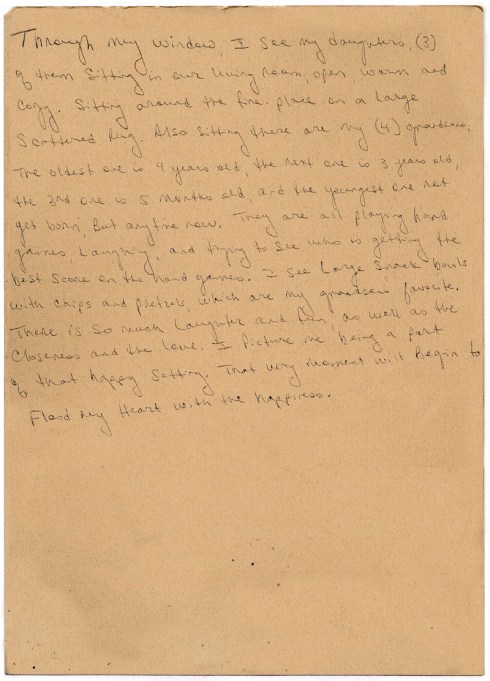 Through my window, I see my daughters, (3)
of them sitting in our living room, open warm and
cozy. Sitting around the fire-place on a large
scattered Rug. Also sitting there are my (4) grandsons.
The oldest one is 4 years old, the next one is 3 years old,
the 3rd one is 5 months old, and the youngest one not
get born, But anytime now. They are all playing hand
games, Laughing, and trying to see who is getting the
best score on the hand games. I see Large Snack bowls
with chips and pretzels, which are my grandsons favorite.
There is so much Laughter and fun, as well as the
closeness and the love. I Picture me being a part
of that happy setting. That very moment will Begin to
Flood My Heart with the happiness.